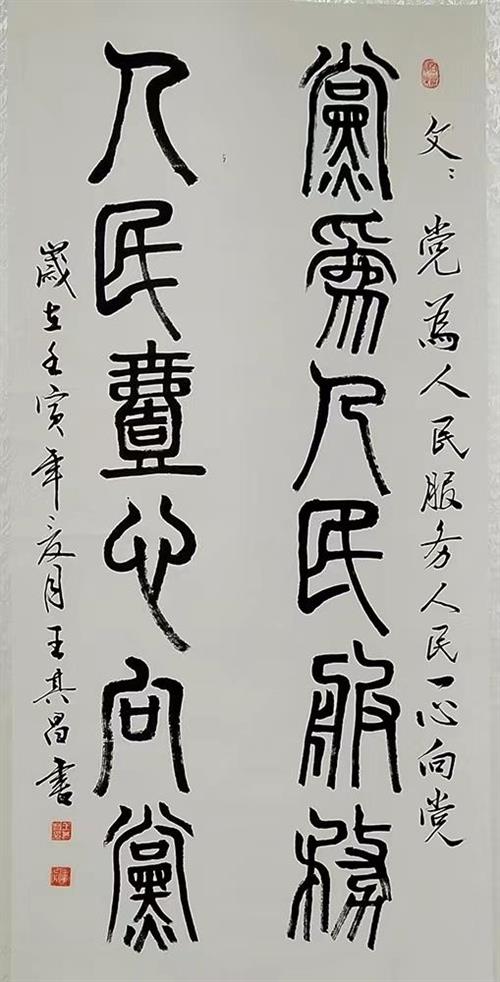 文：党为人民服务人民一心向党
黨爲人民服務
人民壹心向黨
歲在壬寅年夏月王其昌書